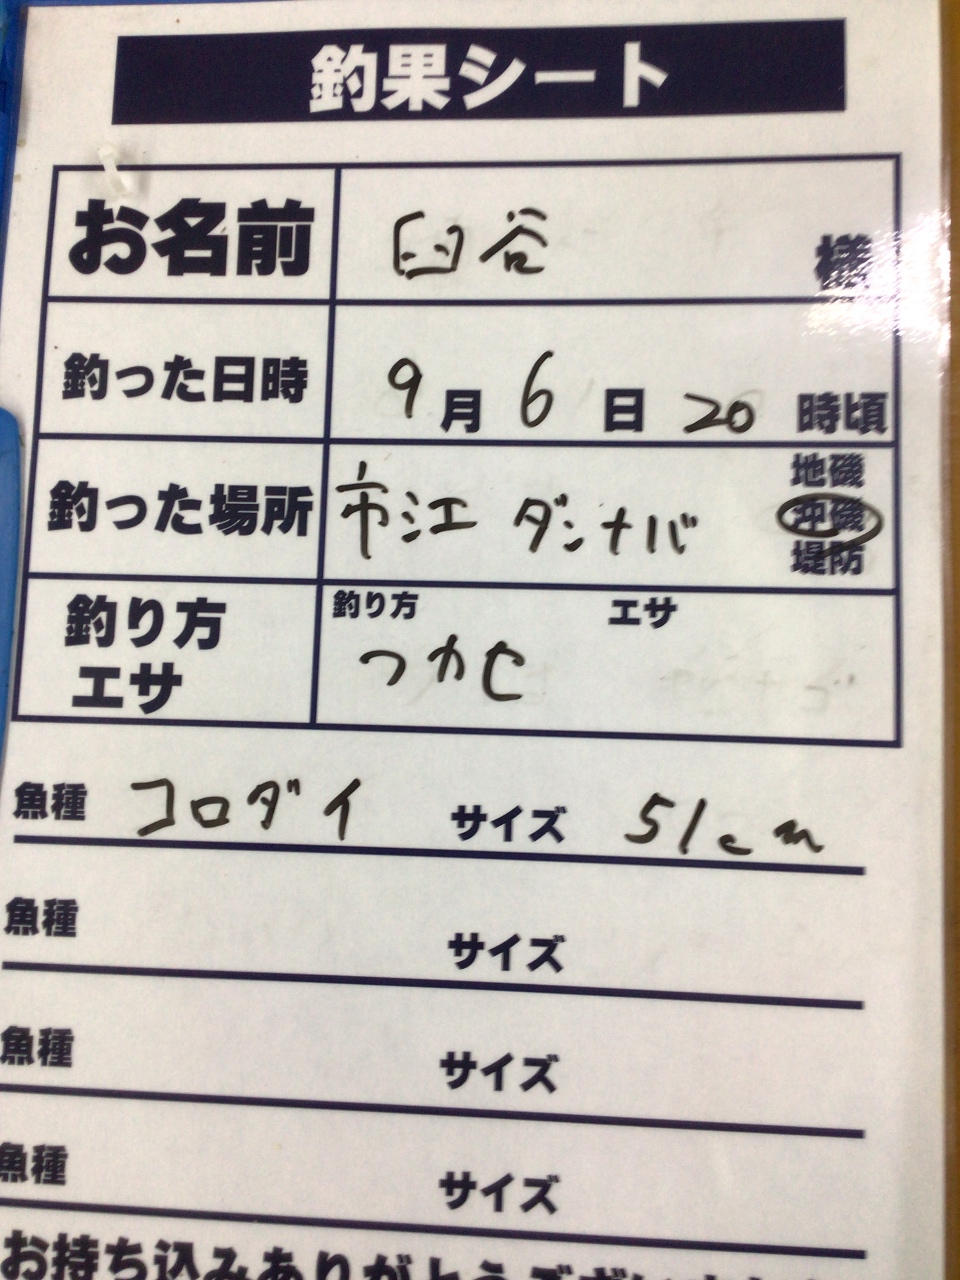 釣果シート
お名前 臼谷 様
釣った日時 9月6日20時頃
釣った場所 市江 ダンナバ 地磯
沖磯
堤防
釣り方 エサ 釣り方 エサ
フカセ
魚種 コロダイ サイズ 51cm
魚種 サイズ
魚種 サイズ
魚種 サイズ
お持ち込みありがとうございま